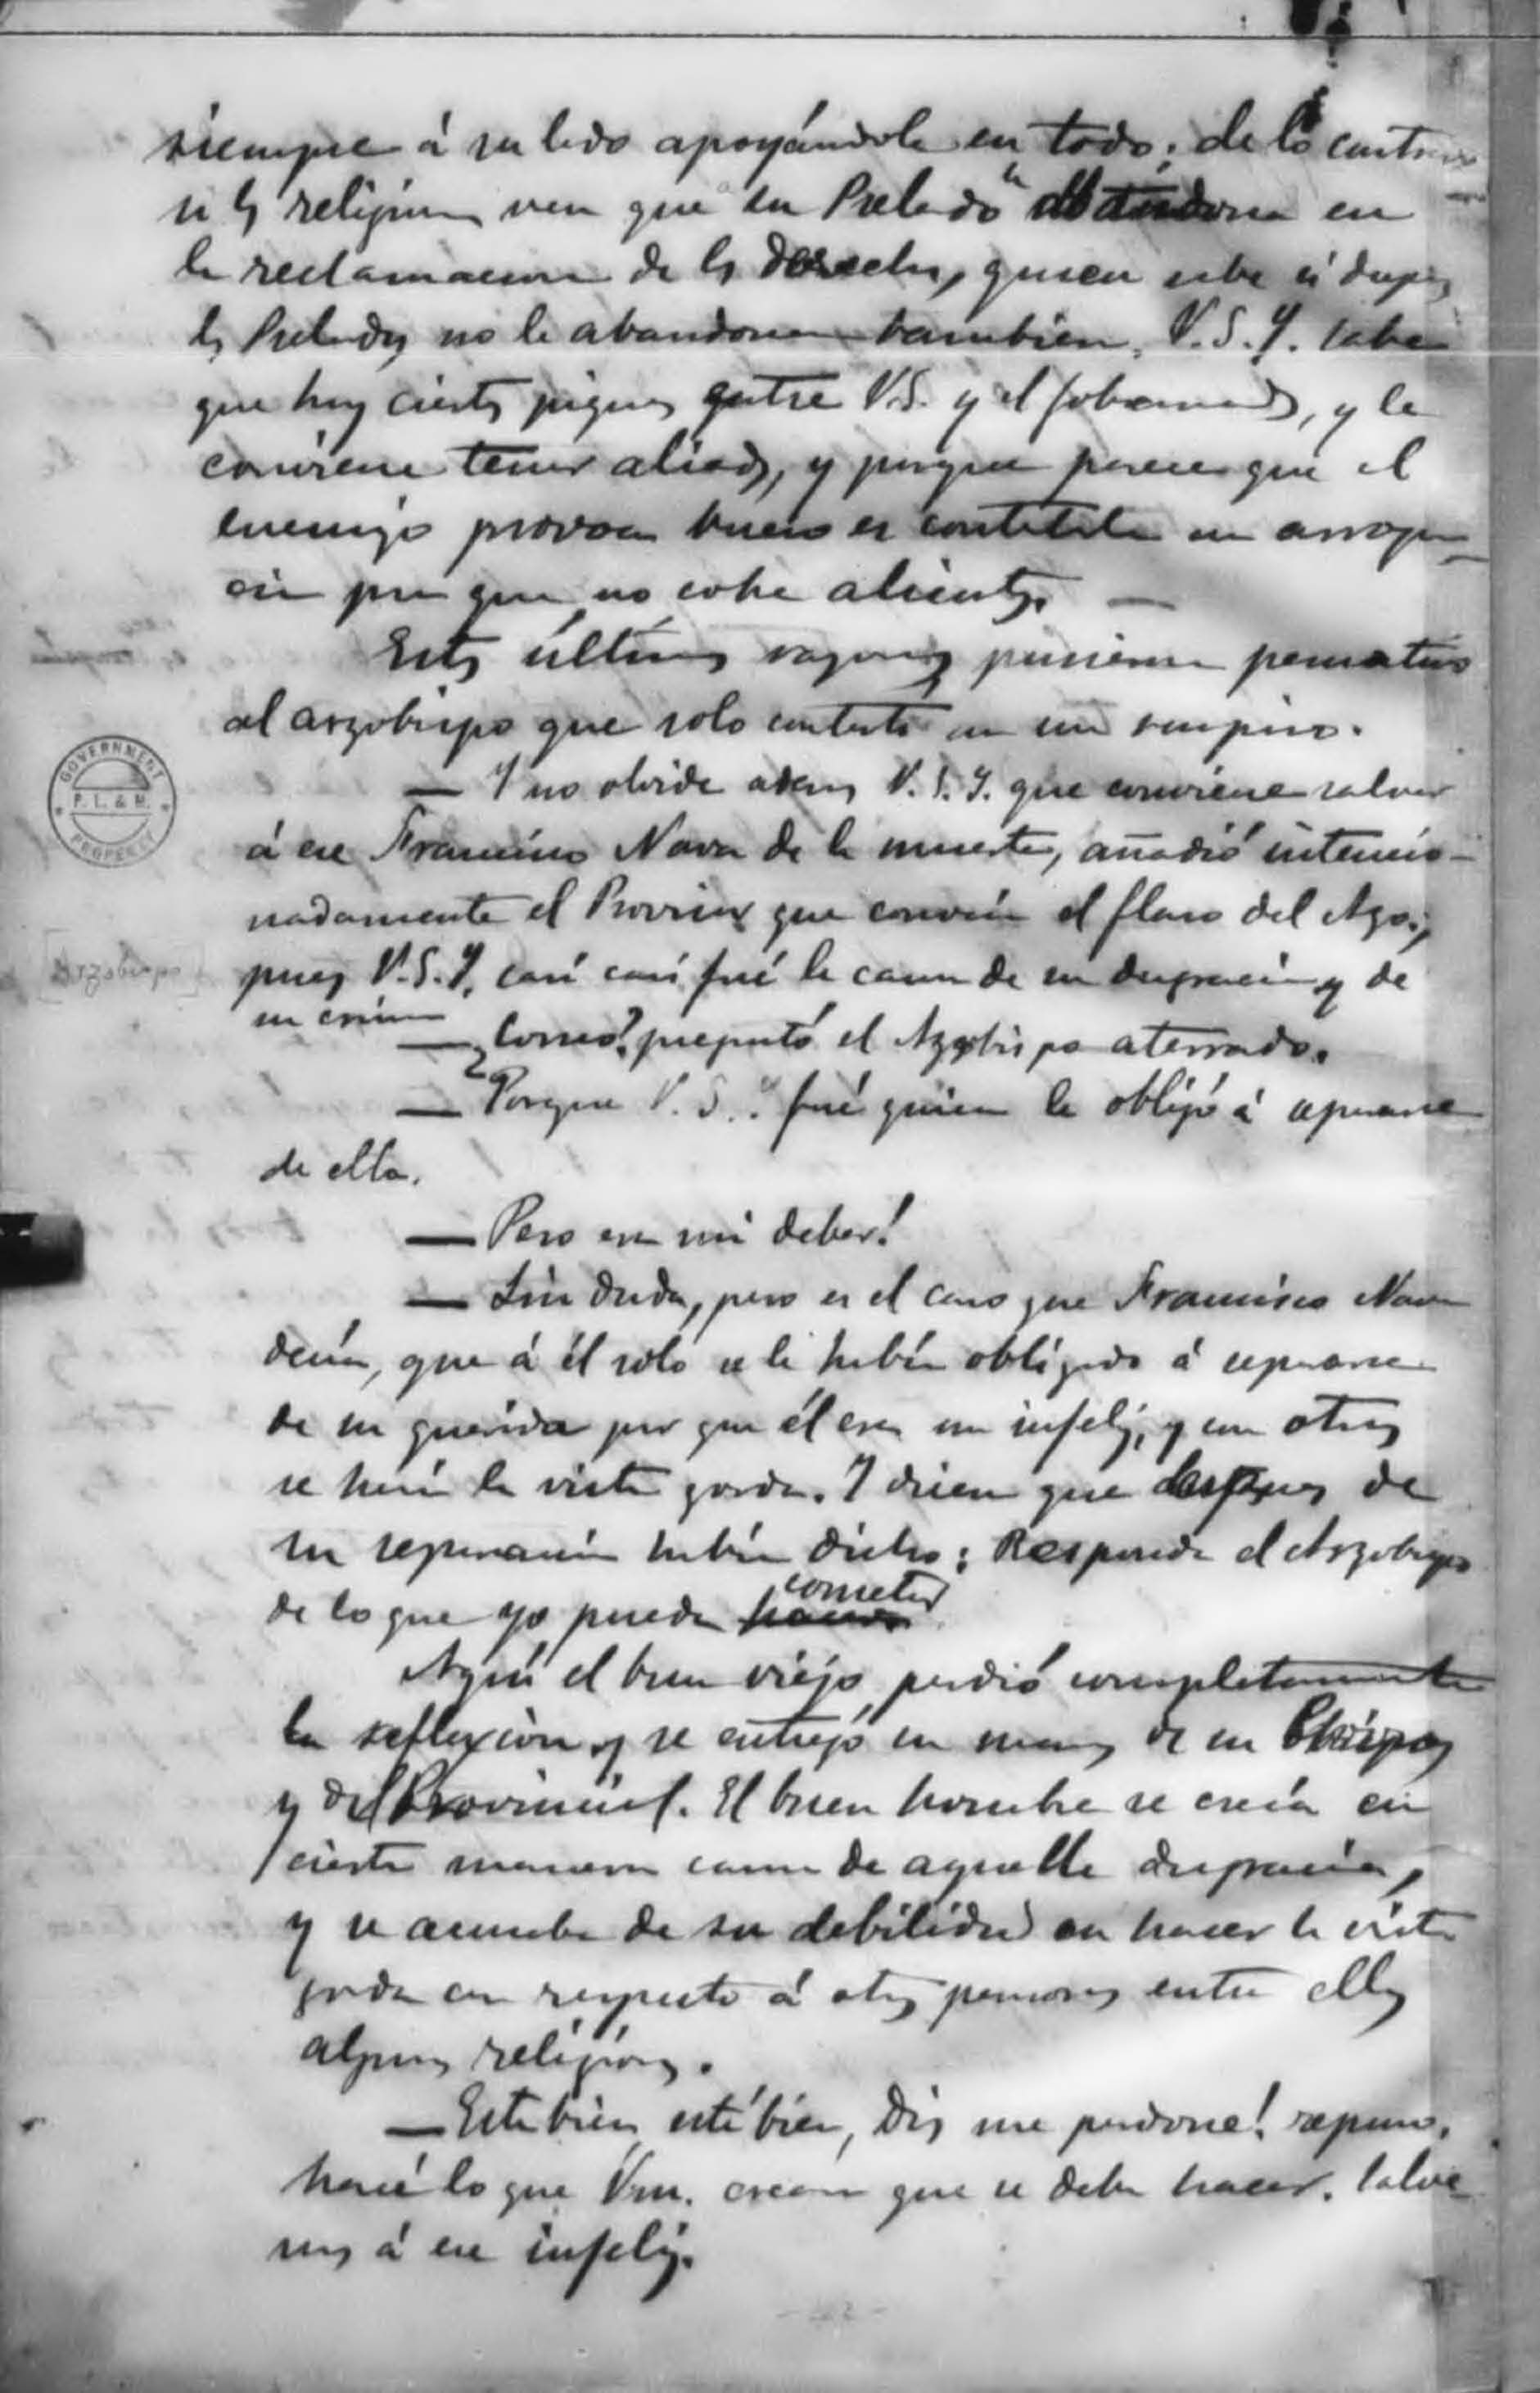 siempre á su lado apoyándole en todo; de lo contrario
si los religiosos ven que su Prelado les abandona en
la reclamacion de los derechos, quien sabe si despues
los Prelados no le abandonan tambien. V.S.Y. sabe
que hay ciertas piques entre V.S. y el Gobernador, y le
conviene tener aliados, y porque parece que el
enemigo provoca bueno es contestarle con arrogan-
cia para que no cobre alientos. —
Estas últimas razones pusieron pensativo
al arzobispo que solo contestó con un suspiro.
— Y no olvide ademas V.S.Y. que conviene salvar
á ese Francisco Nava de la muerte, añadió intencio-
nadamente el Provincial que conocía el flaco del Azo.;
pues V.S.Y. casi casi fué la causa de su desgracia y de
su crimen
[Arzobispo]
— ¿Como? preguntó el Azobispo aterrado.
— Porque V.S.Y. fué quien le obligó á separarse
de ella.
— Pero era mi deber!
— Sin duda, pero es el caso que Francisco Nava
decía, que á él solo se le había obligado á separarse
de su querida por que él era un infeliz, y con otros
se hacía la vista gorda. Y dicen que despues de
su separacion había dicho: Responda el Arzobispo
de lo que yo pueda hacer cometer
Aquí el buen viejo perdió completamente
la reflexion y se entregó en manos de su Obispos
y del Provincial. El buen hombre se creía en
cierta manera causa de aquella desgracia,
y se acusaba de su debilidad en hacer la vista
gorda con respecto á otras personas entre ellas
algunos religiosos.
— Está bien, está bien, Dios me perdone! repuso,
haré lo que Vm. crean que se debe hacer. Salve-
mos á ese infeliz.
GOVERNMENT
P. L. & M.
PROPERTY